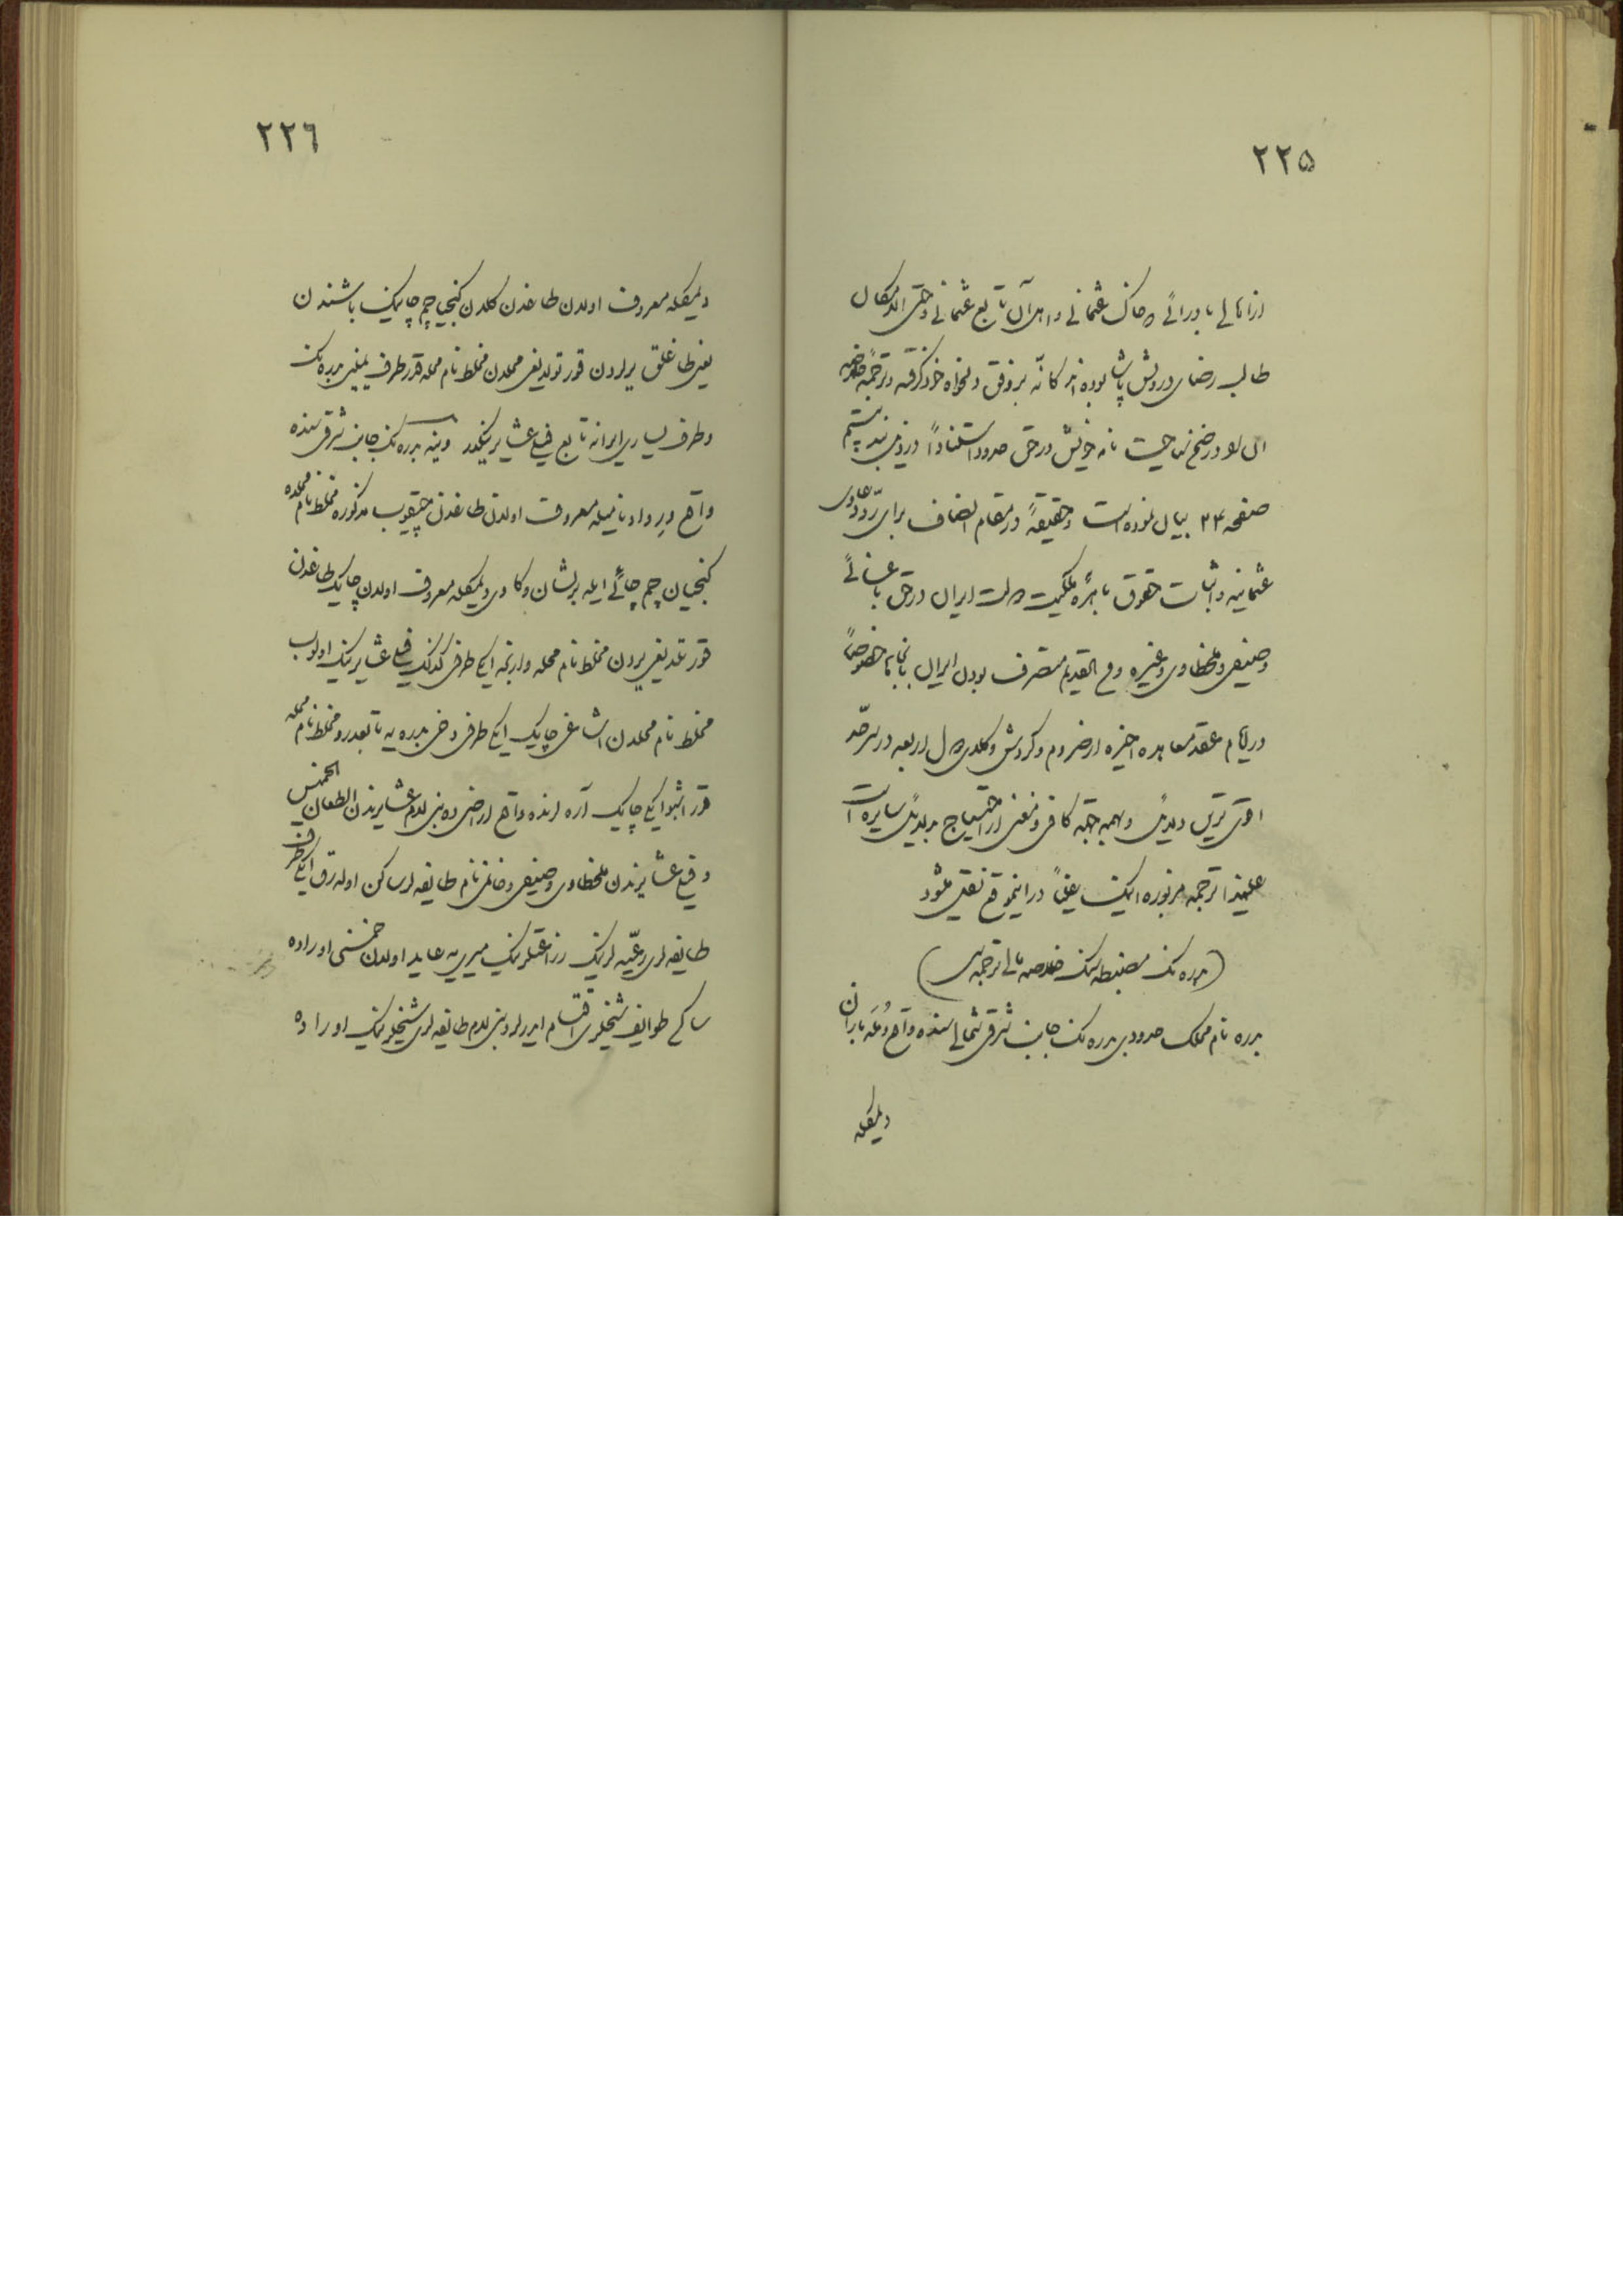 ٢٢٥
از اهالی بادرائی خاک عثمانی و اهل آن تابع عثمانی وحتی الامکان
طالب رضای درویش پاشا بوده اند کانّه بر وفق دلخواه خود گرفته و ترجمه خلاصه
آن او در ضمن سیاحت نامه خویش در حق حدود استناداً در ذیل بند بیستم
صفحه ۲۴ بیان نموده است وحقیقةً در مقام انصاف برای ردّ دعاوی
عثمانیه و اثبات حقوق باهره ملکیت دولت ایران در حق باغسائی
وصیفی و ملخطاوی وغیره ومن القدیم متصرف بودن ایران بآنجاها خصوصاً
در ایام عقد معاهده اخیره ارضروم و گردش وکلای دول اربعه در سرحد
اقوی ترین دلایل و بهمه جهة کافی و مغنی از احتیاج بدلایل سایره است
علیهذا ترجمه مزبوره اینک یقیناً در اینموقع نقل میشود
(بدره نک مضبطه سنک خلاصه مالی ترجمه سی)
بدره نام محلک حدودی بدره نک جانب شرق شمالیسنده واقع دُلَه باران
دیمکله
٢٢٦
دیمکله معروف اولان طاغدن کلان کنجیان چم چاینک باشندن
یعنی طاغلق یرلردن قورتولدیغی محلدن مخلط نام محله قدر طرف یمینی بدره نک
وطرف یساری ایرانه تابع فیلی عشایرینکدر وینه بدره نک جانب شرقیسنده
واقع دیر وا دنامیله معروف اولان طاغدن چیقوب مذکوره مخلط نام محلده
کنجیان چم چائی ایله برلشان و کاوی دیمکله معروف اولان چایک طاغدن
قورتلدیغی یردن مخلط نام محله وارنجه ایکی طرفی کذلک فیلی عشایرینک اولوب
مخلط نام محلدن اشاغی چایک ایکی طرفی دخی بدره یه تابعدر و مخلط نام محله
قدر اشبو ایکی چایک آره لرنده واقع اراضی ده بنی لام عشایرندن الطعان الخمیس
و فیلی عشایرندن ملخطاوی وصیفی و خانمی نام طایفه لر ساکن اوله رق ایکی طرف
طایفه لری رعیه لرینک زراعتلرینک میری یه عاید اولان خمسنی اوراده
ساکن طوایف شیخلری اقتسام ایدرلر و بنی لام طایفه لری شیخلرینک اوراده